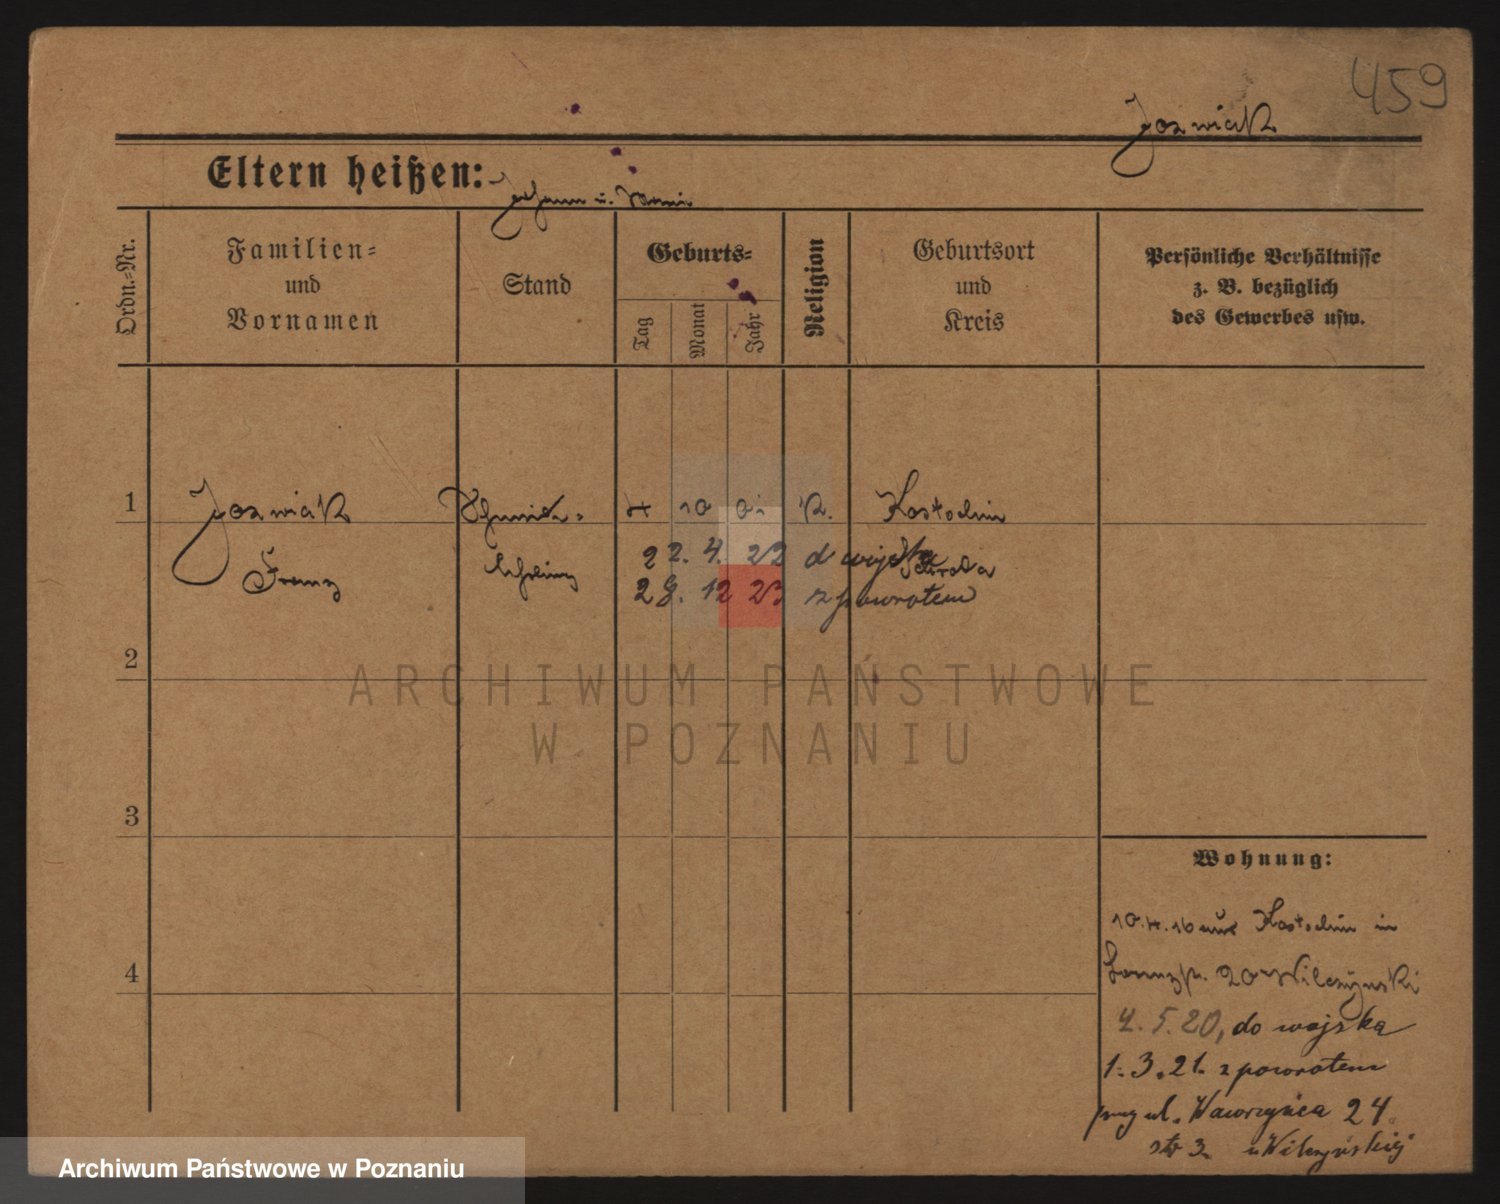 459
Jozwiak
Eltern heißen: Johann u. Maria
Ordn.-Nr.
Familien-
und
Vornamen
Stand
Geburts-
Tag
Monat
Jahr
Religion
Geburtsort
und
Kreis
Persönliche Verhältnisse
z. B. bezüglich
des Gewerbes usw.
1 Jozwiak Schmied- 4 10 01 K. Kostschin
Franz lehrling 22. 4. 22 d wojska Schroda
28. 12 23 z powrotem
2
ARCHIWUM PAŃSTWOWE
W POZNANIU
3
Wohnung:
10.4.16 aus Kostschin in
4
20 Wilczynski
4.5.20, do wojska
1.3.21. z powrotem
przy ul. Wawrzyńca 24
u Wilczyńskiej
Archiwum Państwowe w Poznaniu